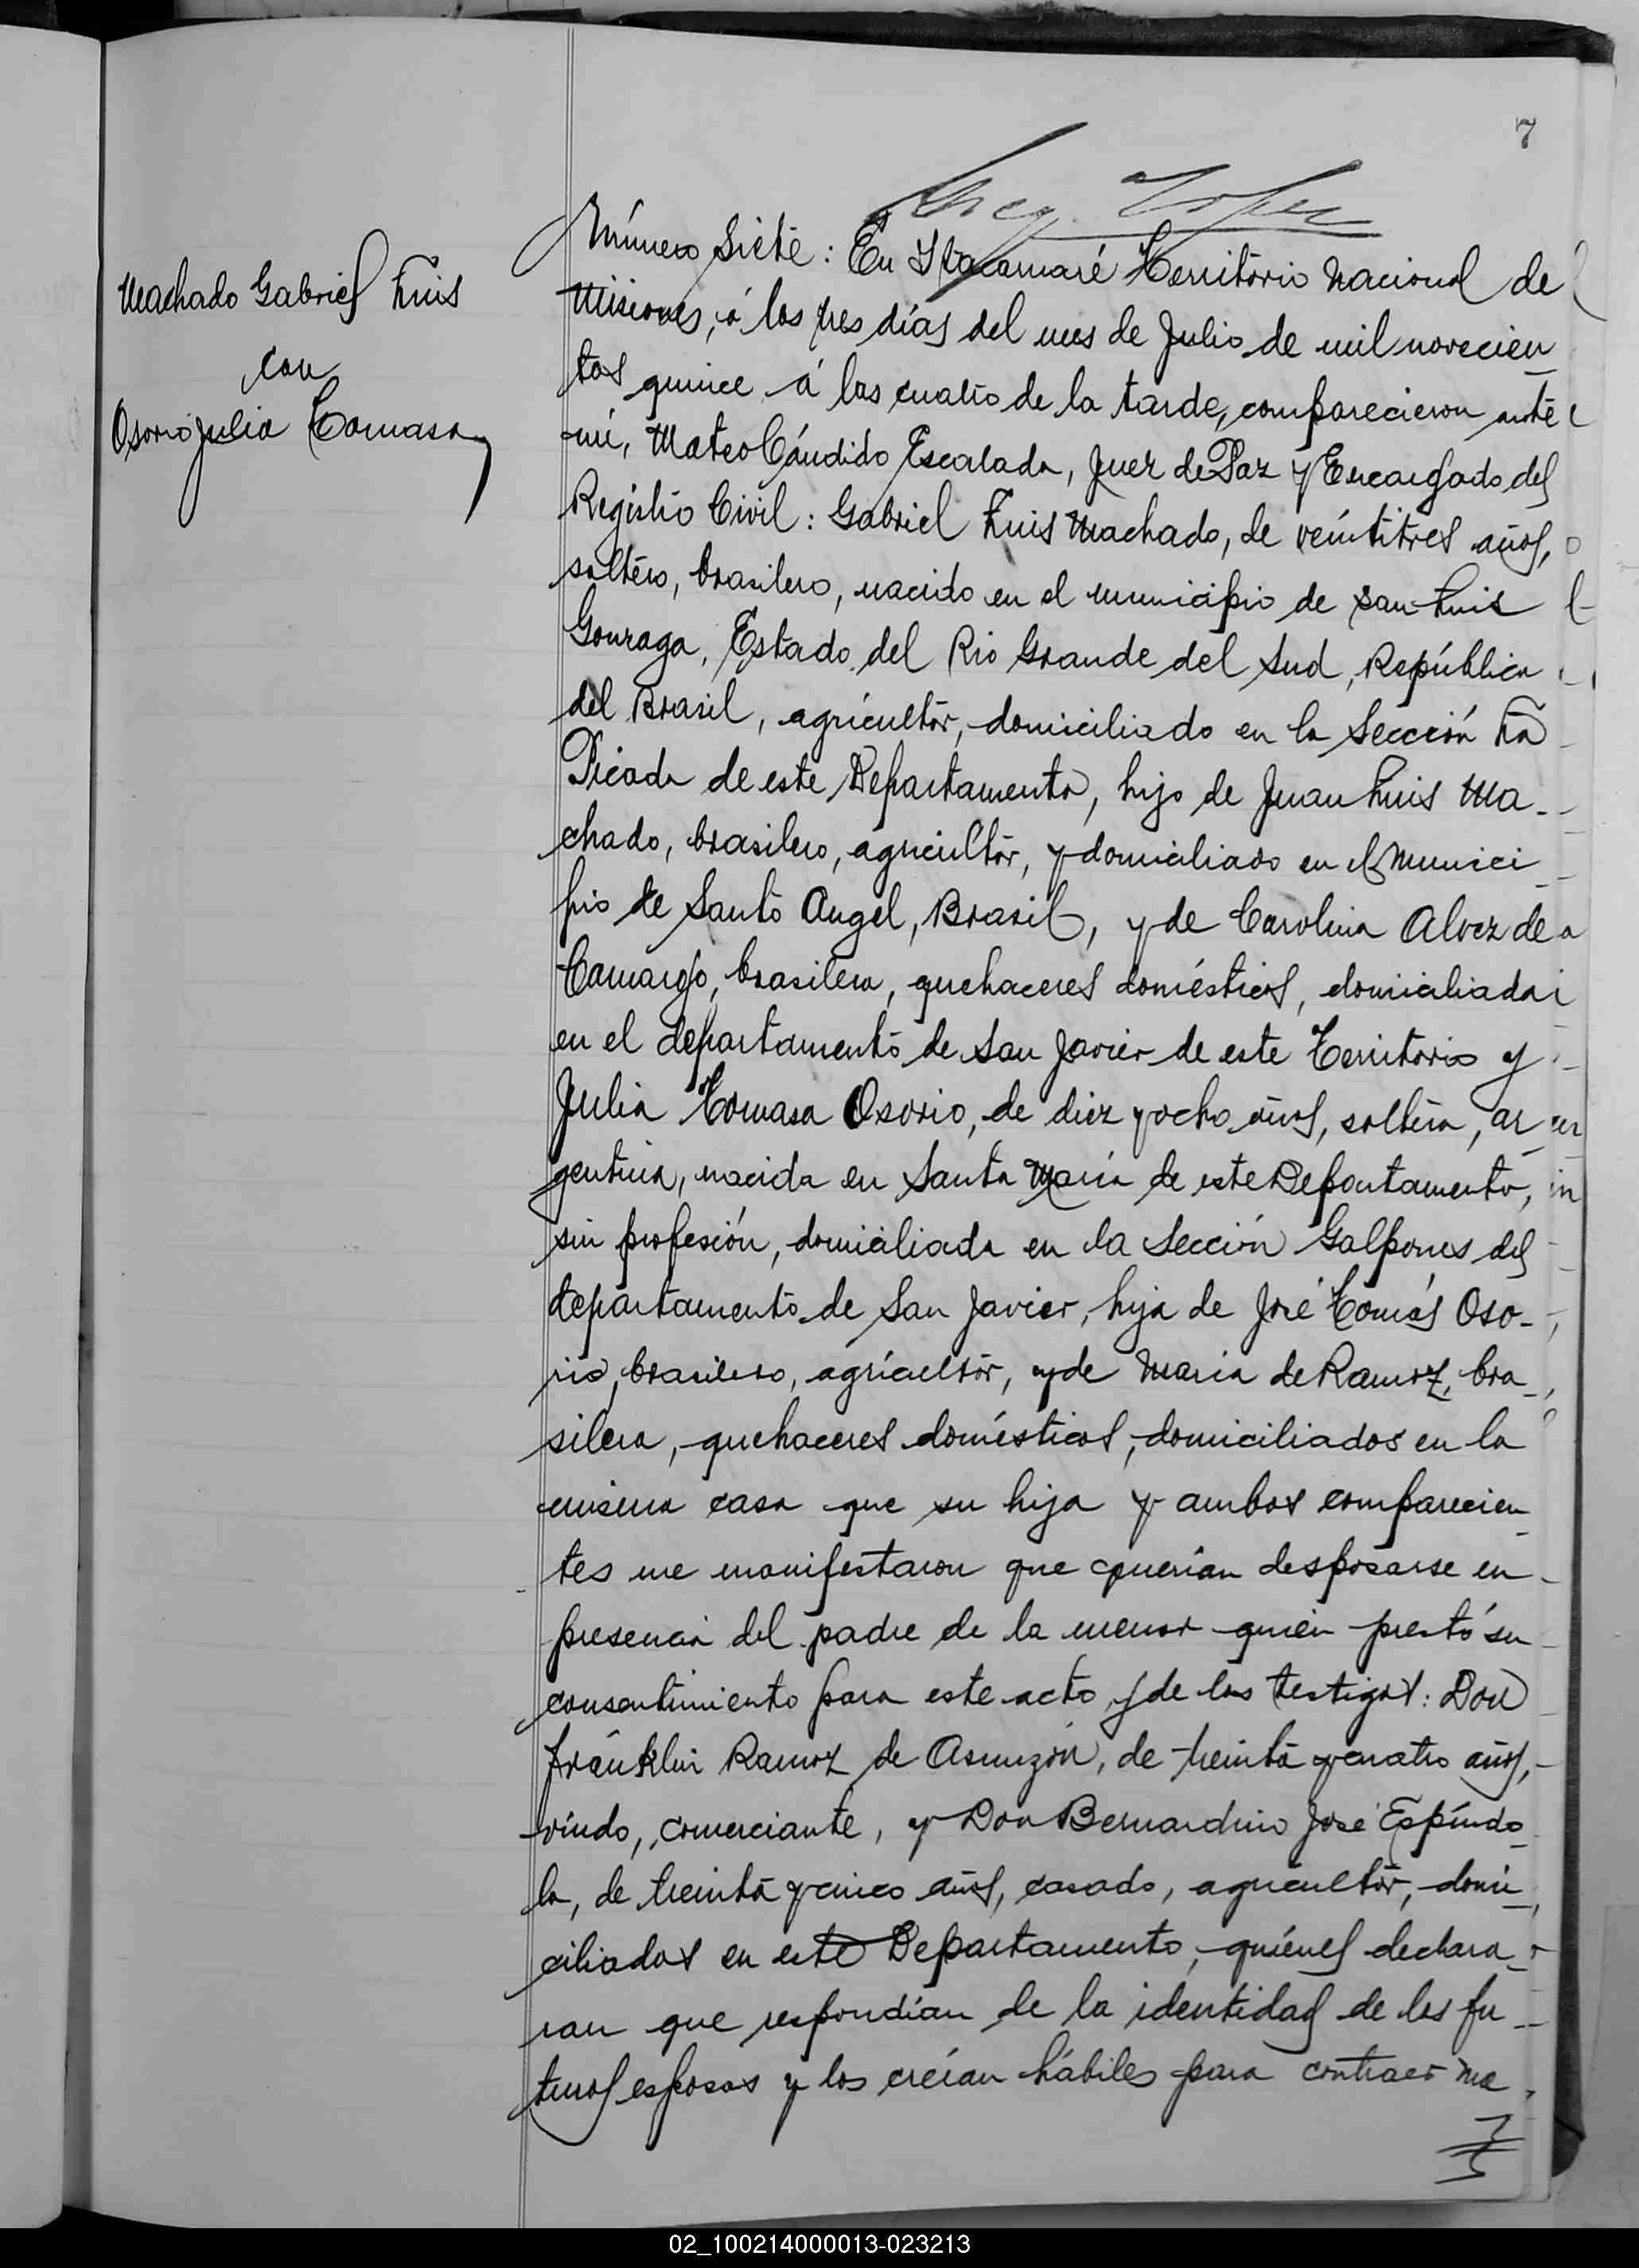 7
Machado Gabriel Luis
con
Osorio Julia Tomasa
Número Siete: En Itacaruaré Territorio Nacional de
Misiones, á los tres días del mes de Julio de mil novecien
tos quince á las cuatro de la tarde, comparecieron ante
mí, Mateo Cándido Escalada, Juez de Paz y Encargado del
Registro Civil: Gabriel Luis Machado, de veintitres años,
soltero, brasilero, nacido en el municipio de San Luis
Gonzaga, Estado del Rio Grande del Sud, República
del Brasil, agricultor, domiciliado en la Sección La
Picada de este Departamento, hijo de Juan Luis Ma-
chado, brasilero, agricultor, y domiciliado en el Munici
pio de Santo Angel, Brasil, y de Carolina Alvez de
Camargo, brasilera, quehaceres domésticos, domiciliada
en el departamento de San Javier de este Territorio y
Julia Tomasa Osorio, de diez y ocho años, soltera, ar
gentina, nacida en Santa María de este Departamento,
sin profesión, domiciliada en la Sección Galpones del
departamento de San Javier, hija de José Tomás Oso-
rio, brasilero, agricultor, y de Maria de Ramoz, bra
silera, quehaceres domésticos, domiciliados en la
misma casa que su hija y ambos comparecien
tes me manifestaron que querían desposarse en
presencia del padre de la menor quien prestó su
consentimiento para este acto y de los testigos: Don
Fránklin Ramoz de Asunzón, de treinta y cuatro años,
viudo, comerciante, y Don Bernardino José Espíndo
la, de treinta y cinco años, casado, agricultor, domi
ciliados en este Departamento, quiénes declara
ran que respondían de la identidad de los fu
turos esposos y los creían hábiles para contraer ma
02_100214000013-023213